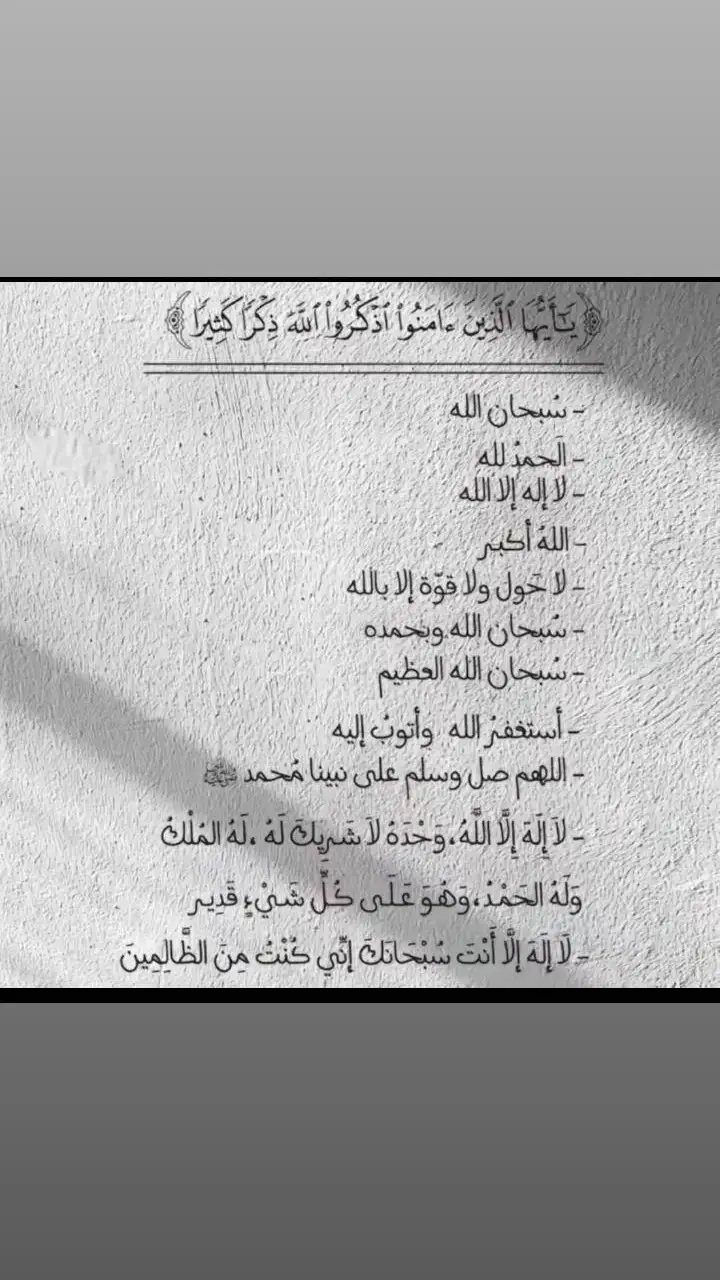 ﴿يَـٰٓأَيُّهَا ٱلَّذِينَ ءَامَنُوا۟ ٱذْكُرُوا۟ ٱللَّهَ ذِكْرًا كَثِيرًا﴾
- سُبحان الله
- الَحمدُ لله
- لا إله إلا الله
- اللهُ أكبر
- لا حَول ولا قوّة إلا بالله
- سُبحان الله وبحمده
- سُبحان الله العظيم
- أستغفرُ الله وأتوبُ إليه
- اللهم صل وسلم على نبينا مُحمد ﷺ
- لاَ إِلَهَ إِلَّا اللَّهُ، وَحْدَهُ لاَ شَرِيكَ لَهُ ،لَهُ المُلْكُ
وَلَهُ الحَمْدُ، وَهُوَ عَلَى كُلِّ شَيْءٍ قَدِير
- لَا إِلَهَ إِلَّا أَنْتَ سُبْحَانَكَ إِنِّي كُنْتُ مِنَ الظَّالِمِينَ